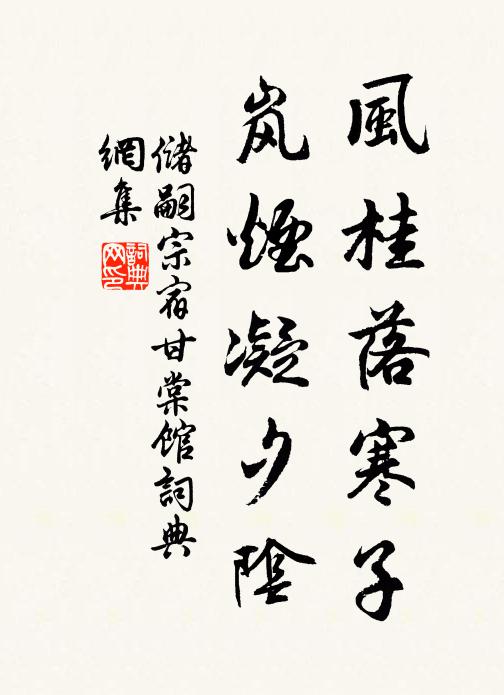 風桂落寒子
岚煙凝夕陰
儲嗣宗宿甘棠館詞典
網集
詞典
网印